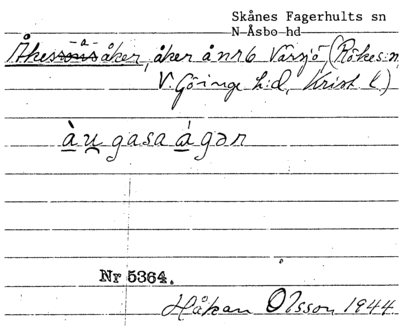 Skånes Fagerhults sn
N-Åsbo hd
Åkesaåker, åker å nr 6 Varsjö, (Rökes sn,
V. Göinge h:d, Krist l.)
àu̯gasa ágər
Nr 5364.
Håkan Olsson 1944